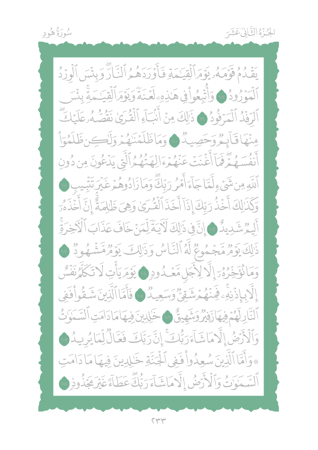 الجُزءُ الثَّانِي عَشَرَ
سُورَةُ هُودٍ
يَقۡدُمُ قَوۡمَهُۥ يَوۡمَ ٱلۡقِيَٰمَةِ فَأَوۡرَدَهُمُ ٱلنَّارَۖ وَبِئۡسَ ٱلۡوِرۡدُ
ٱلۡمَوۡرُودُ وَأُتۡبِعُواْ فِي هَٰذِهِۦ لَعۡنَةٗ وَيَوۡمَ ٱلۡقِيَٰمَةِۚ بِئۡسَ
ٱلرِّفۡدُ ٱلۡمَرۡفُودُ ذَٰلِكَ مِنۡ أَنۢبَآءِ ٱلۡقُرَىٰ نَقُصُّهُۥ عَلَيۡكَۖ
مِنۡهَا قَآئِمٞ وَحَصِيدٞ وَمَا ظَلَمۡنَٰهُمۡ وَلَٰكِن ظَلَمُوٓاْ
أَنفُسَهُمۡۖ فَمَآ أَغۡنَتۡ عَنۡهُمۡ ءَالِهَتُهُمُ ٱلَّتِي يَدۡعُونَ مِن دُونِ
ٱللَّهِ مِن شَيۡءٖ لَّمَّا جَآءَ أَمۡرُ رَبِّكَۖ وَمَا زَادُوهُمۡ غَيۡرَ تَتۡبِيبٖ
وَكَذَٰلِكَ أَخۡذُ رَبِّكَ إِذَآ أَخَذَ ٱلۡقُرَىٰ وَهِيَ ظَٰلِمَةٌۚ إِنَّ أَخۡذَهُۥٓ
أَلِيمٞ شَدِيدٌ إِنَّ فِي ذَٰلِكَ لَأٓيَةٗ لِّمَنۡ خَافَ عَذَابَ ٱلۡأٓخِرَةِۚ
ذَٰلِكَ يَوۡمٞ مَّجۡمُوعٞ لَّهُ ٱلنَّاسُ وَذَٰلِكَ يَوۡمٞ مَّشۡهُودٞ
وَمَا نُؤَخِّرُهُۥٓ إِلَّا لِأَجَلٖ مَّعۡدُودٖ يَوۡمَ يَأۡتِ لَا تَكَلَّمُ نَفۡسٌ
إِلَّا بِإِذۡنِهِۦۚ فَمِنۡهُمۡ شَقِيّٞ وَسَعِيدٞ فَأَمَّا ٱلَّذِينَ شَقُواْ فَفِي
ٱلنَّارِ لَهُمۡ فِيهَا زَفِيرٞ وَشَهِيقٌ خَٰلِدِينَ فِيهَا مَا دَامَتِ ٱلسَّمَٰوَٰتُ
وَٱلۡأَرۡضُ إِلَّا مَا شَآءَ رَبُّكَۚ إِنَّ رَبَّكَ فَعَّالٞ لِّمَا يُرِيدُ
۞ وَأَمَّا ٱلَّذِينَ سُعِدُواْ فَفِي ٱلۡجَنَّةِ خَٰلِدِينَ فِيهَا مَا دَامَتِ
ٱلسَّمَٰوَٰتُ وَٱلۡأَرۡضُ إِلَّا مَا شَآءَ رَبُّكَۖ عَطَآءً غَيۡرَ مَجۡذُوذٖ
٢٣٣